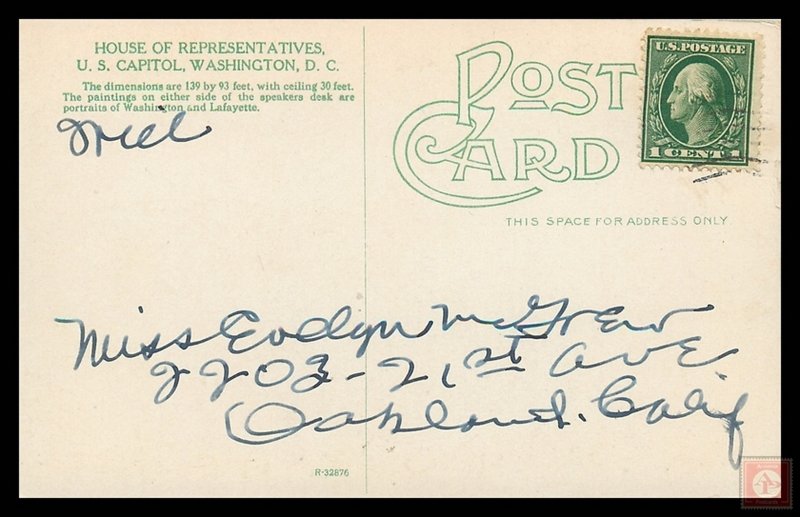 HOUSE OF REPRESENTATIVES,
U. S. CAPITOL, WASHINGTON, D. C.
The dimensions are 139 by 93 feet, with ceiling 30 feet.
The paintings on either side of the speakers desk are
portraits of Washington and Lafayette.
POST
CARD
U.S. POSTAGE
1 CENT 1
THIS SPACE FOR ADDRESS ONLY.
Miss Evelyn McGrew
2203-21st AVE
Oakland. Calif
R-32876